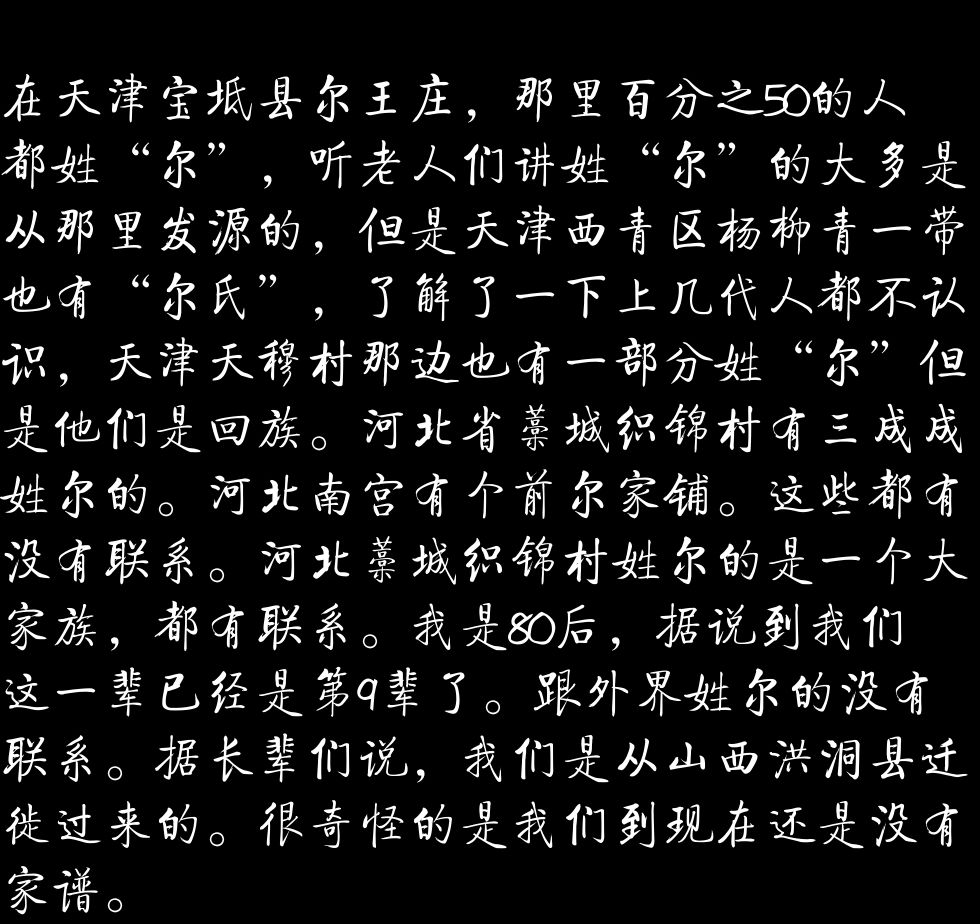 在天津宝坻县尔王庄，那里百分之50的人
都姓“尔”，听老人们讲姓“尔”的大多是
从那里发源的，但是天津西青区杨柳青一带
也有“尔氏”，了解了一下上几代人都不认
识，天津天穆村那边也有一部分姓“尔”但
是他们是回族。河北省藁城织锦村有三成成
姓尔的。河北南宫有个前尔家铺。这些都有
没有联系。河北藁城织锦村姓尔的是一个大
家族，都有联系。我是80后，据说到我们
这一辈已经是第9辈了。跟外界姓尔的没有
联系。据长辈们说，我们是从山西洪洞县迁
徙过来的。很奇怪的是我们到现在还是没有
家谱。